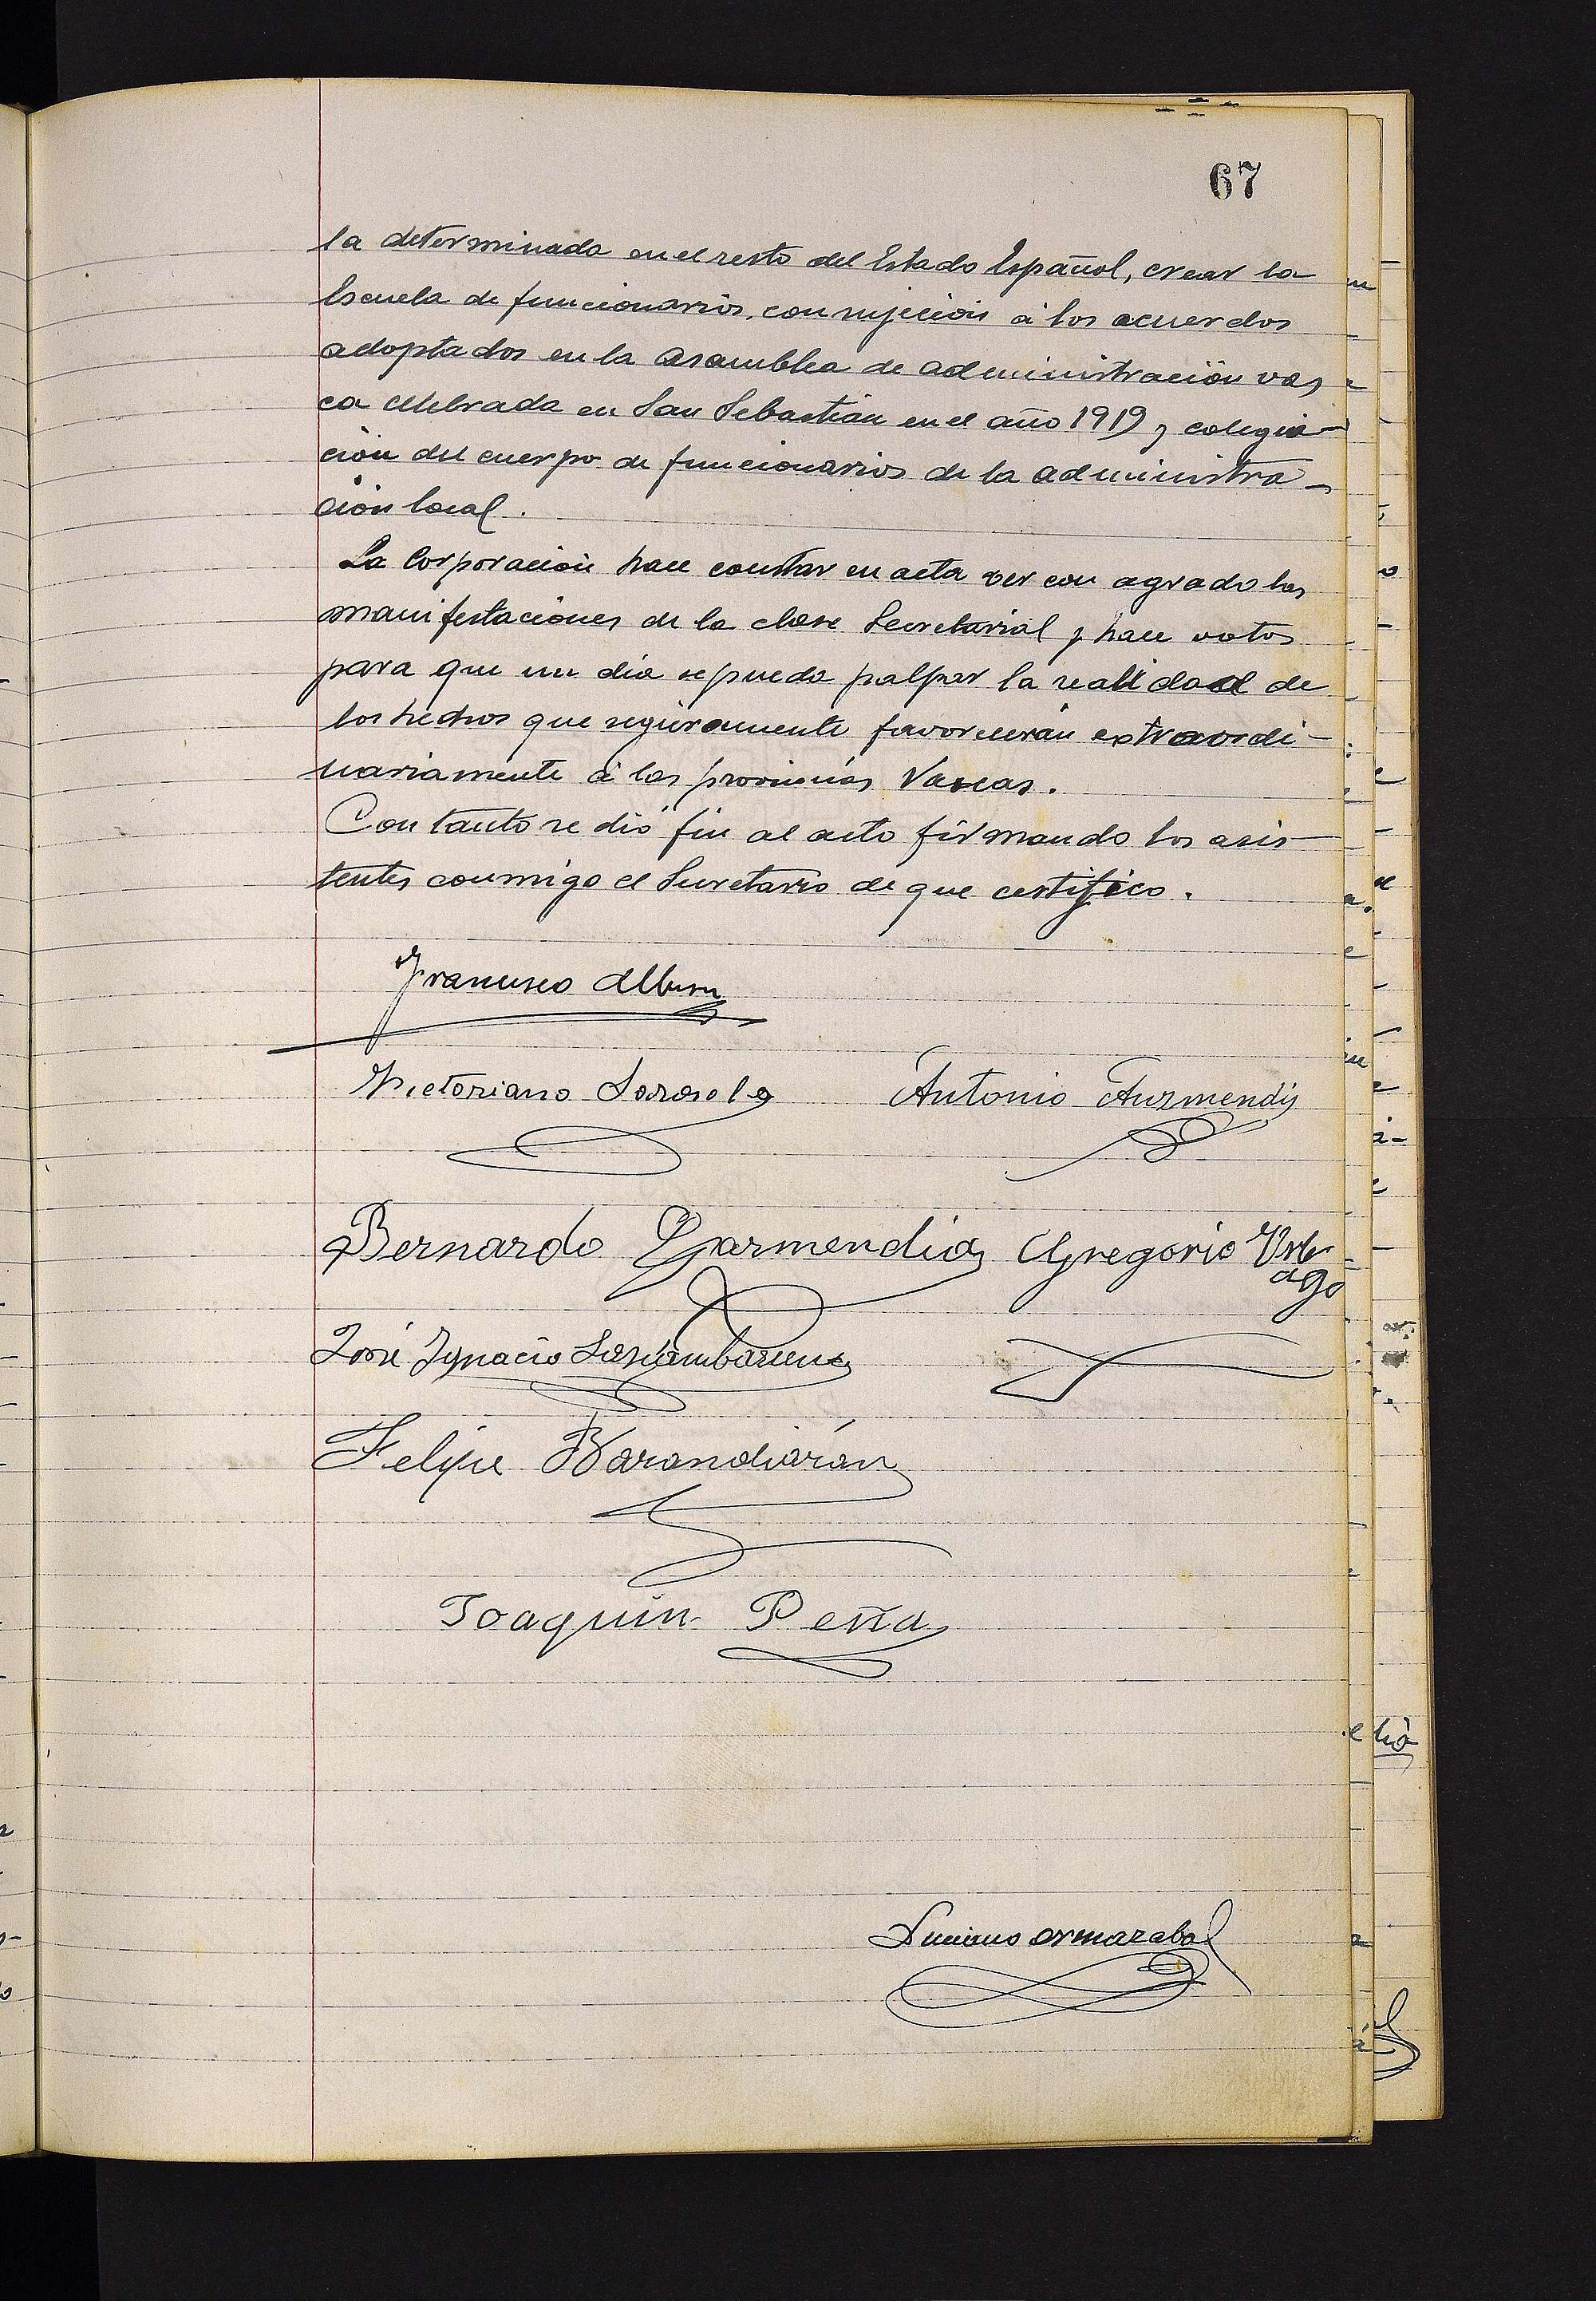 67
la determinada en el resto del Estado Español, crear la
Escuela de funcionarios, con sujeción á los acuerdos
adoptados en la Asamblea de administración vas
ca celebrada en San Sebastián en el año 1919 y colegia-
ción del cuerpo de funcionarios de la administra-
ción local.
La Corporación hace constar en acta ver con agrado las
manifestaciones de la clase Secretarial y hace votos
para que un dia se pueda palpar la realidad de
los hechos que seguramente favorecerán extraordi-
nariamente á las provincias Vascas.
Con tanto se dió fin al acto firmando los asis-
tentes conmigo el Secretario de que certifico.
Francisco
Victoriano Antonio Auzmendi
Bernardo Garmendia Gregorio
José Ignacio
Felipe Barandiarán
Joaquin Peña
Luciano Ormazabal